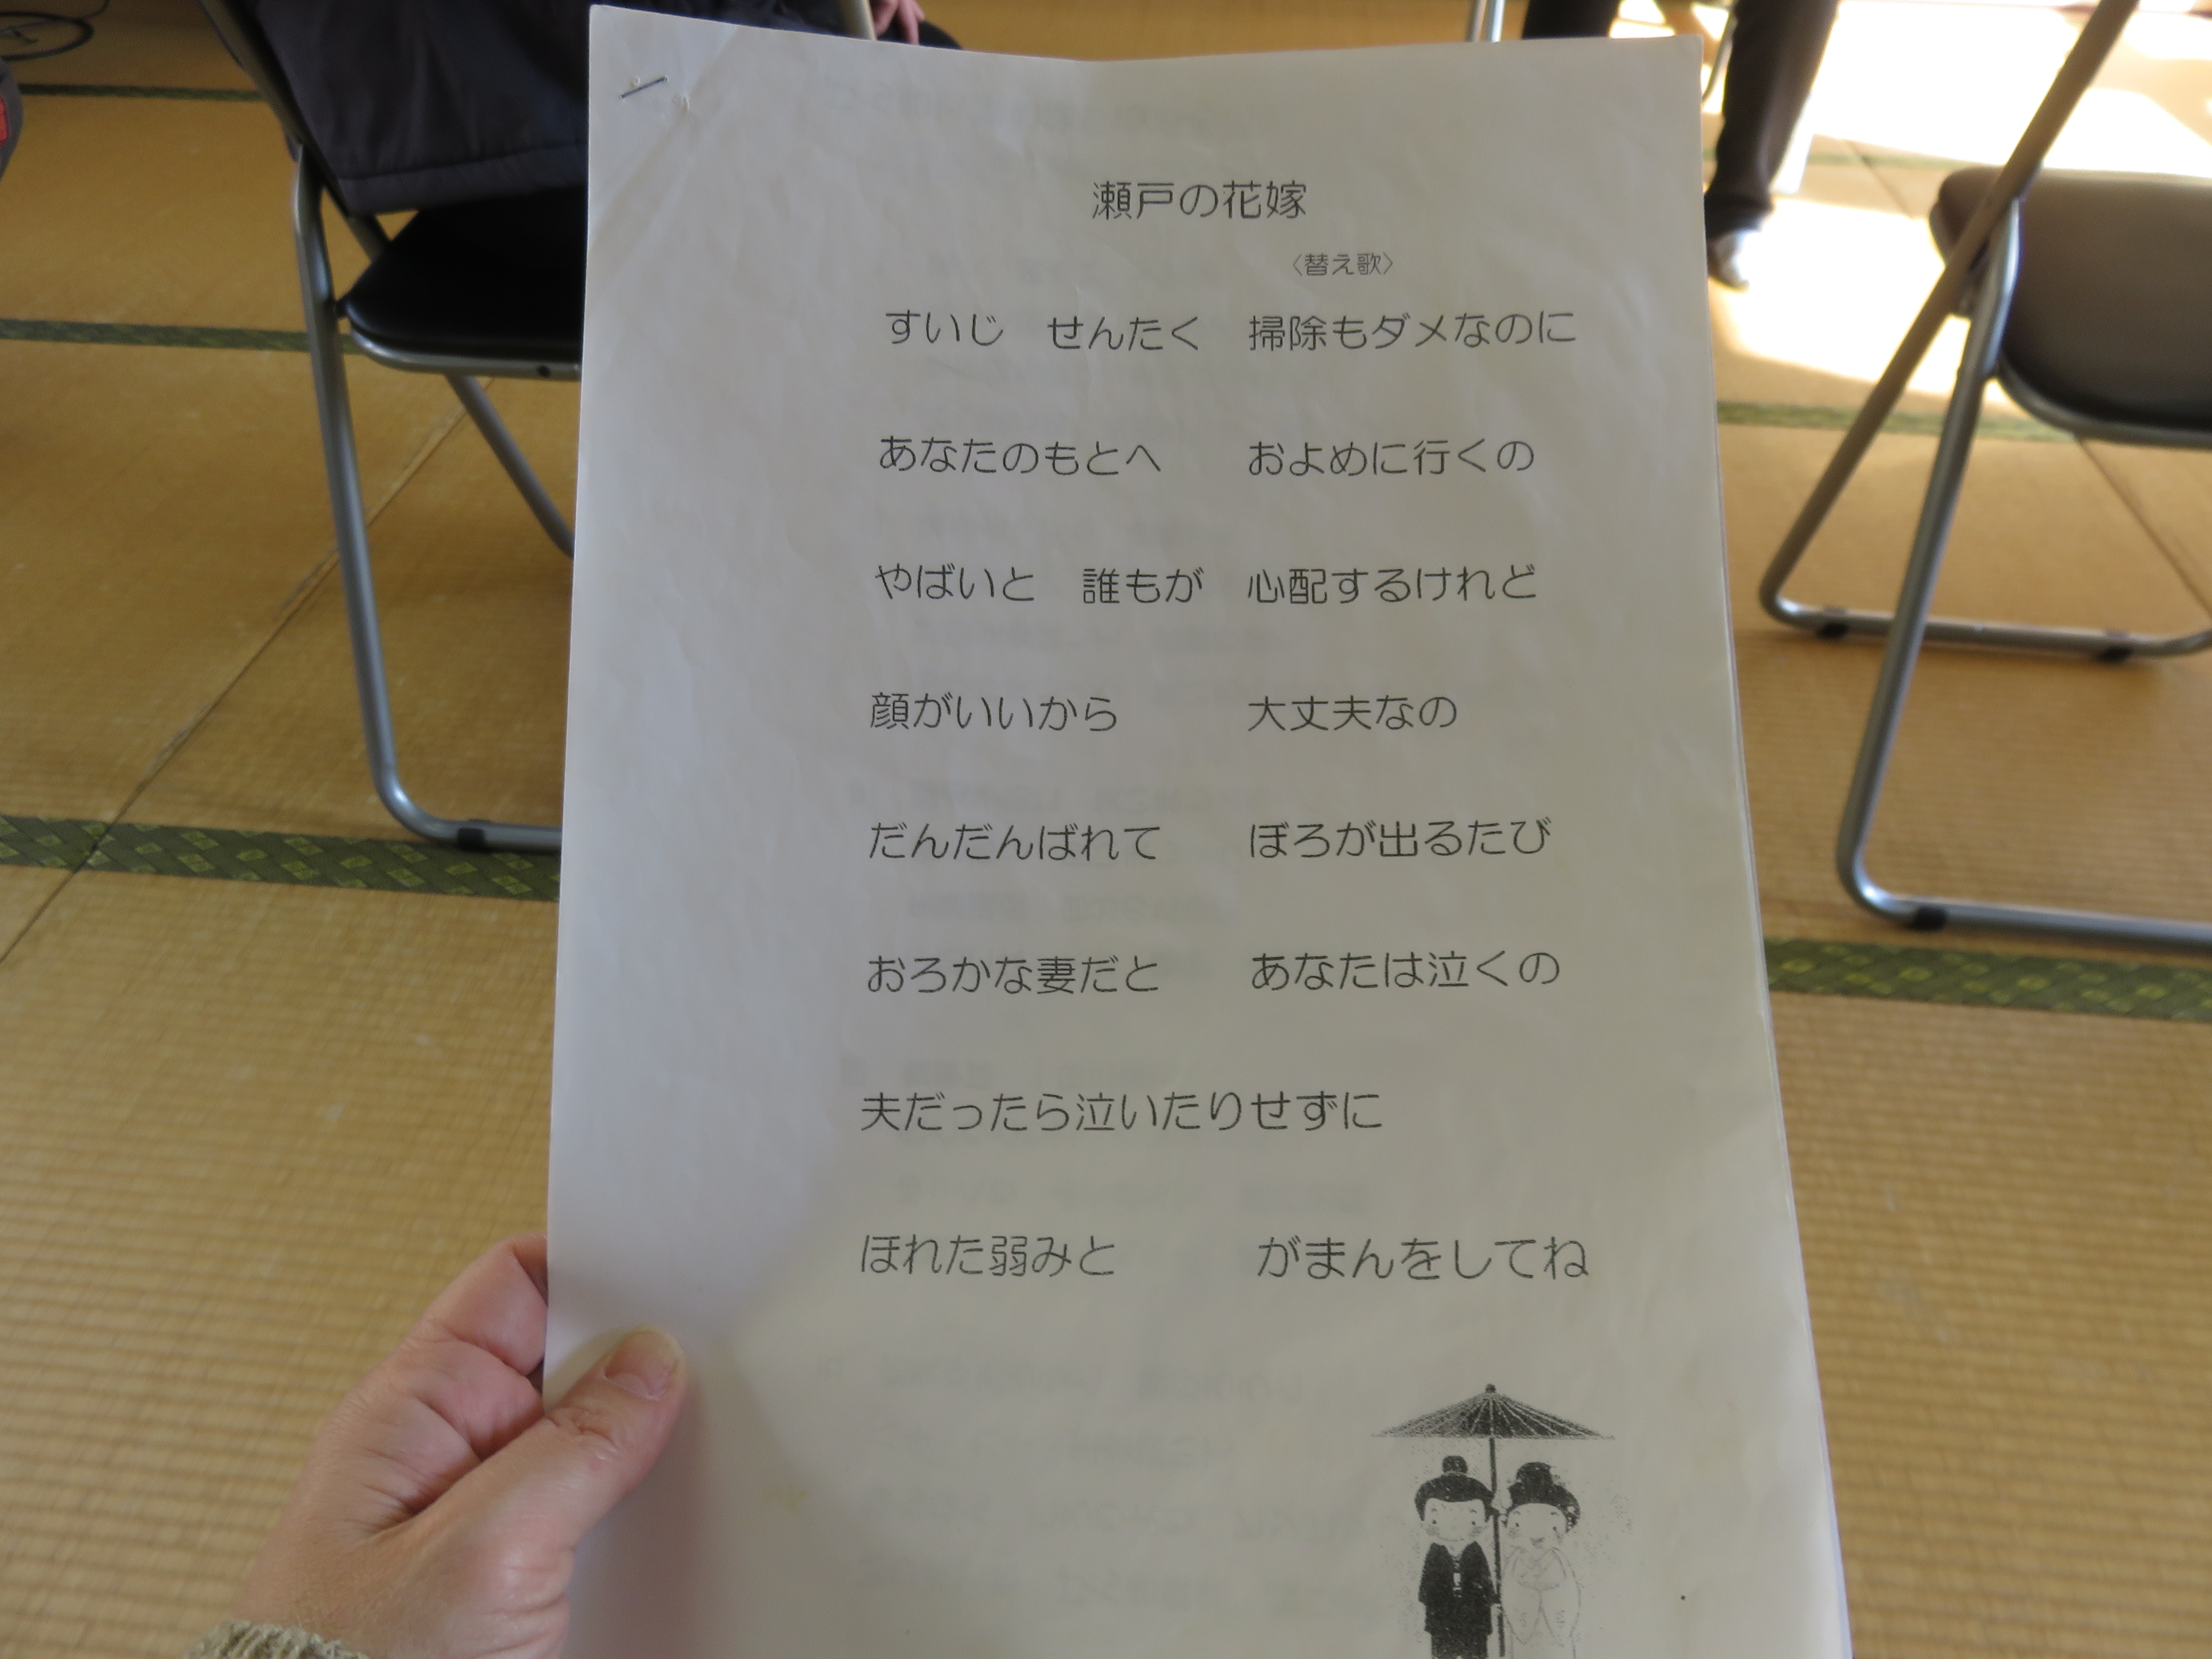 瀬戸の花嫁
〈替え歌〉
すいじ　せんたく　掃除もダメなのに
あなたのもとへ　　およめに行くの
やばいと　誰もが　心配するけれど
顔がいいから　　　大丈夫なの
だんだんばれて　　ぼろが出るたび
おろかな妻だと　　あなたは泣くの
夫だったら泣いたりせずに
ほれた弱みと　　　がまんをしてね